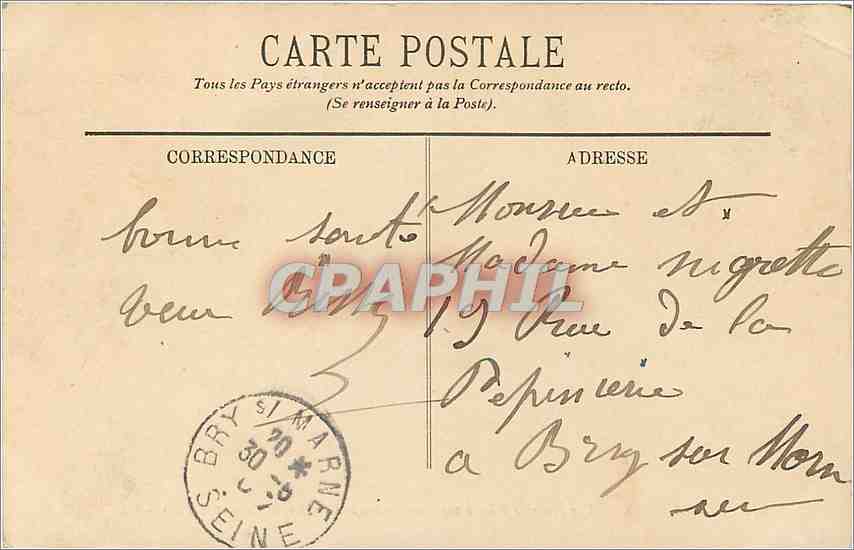 CARTE POSTALE
Tous les Pays étrangers n'acceptent pas la Correspondance au recto.
(Se renseigner à la Poste).
CORRESPONDANCE
ADRESSE
bonne santé
veuve
Monsieur et
Madame nigrette
19 Rue de la
Pepinierie
a Bry sur Marn
CPAPHIL
BRY s/ MARNE
20 *
30
SEINE